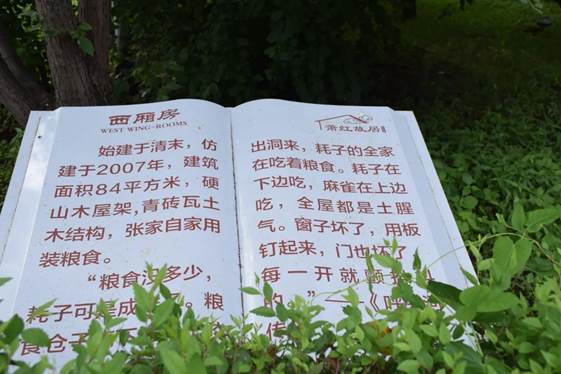 西厢房
WEST WING-ROOMS
始建于清末，仿
建于2007年，建筑
面积84平方米，硬
山木屋架，青砖瓦土
木结构，张家自家用
装粮食。
“粮食没多少，
耗子可是成
粮
食仓子
萧红故居
出洞来，耗子的全家
在吃着粮食。耗子在
下边吃，麻雀在上边
吃，全屋都是土腥
气。窗子坏了，用板
钉起来，门也坏了
每一开就颤
的。”——《呼
传